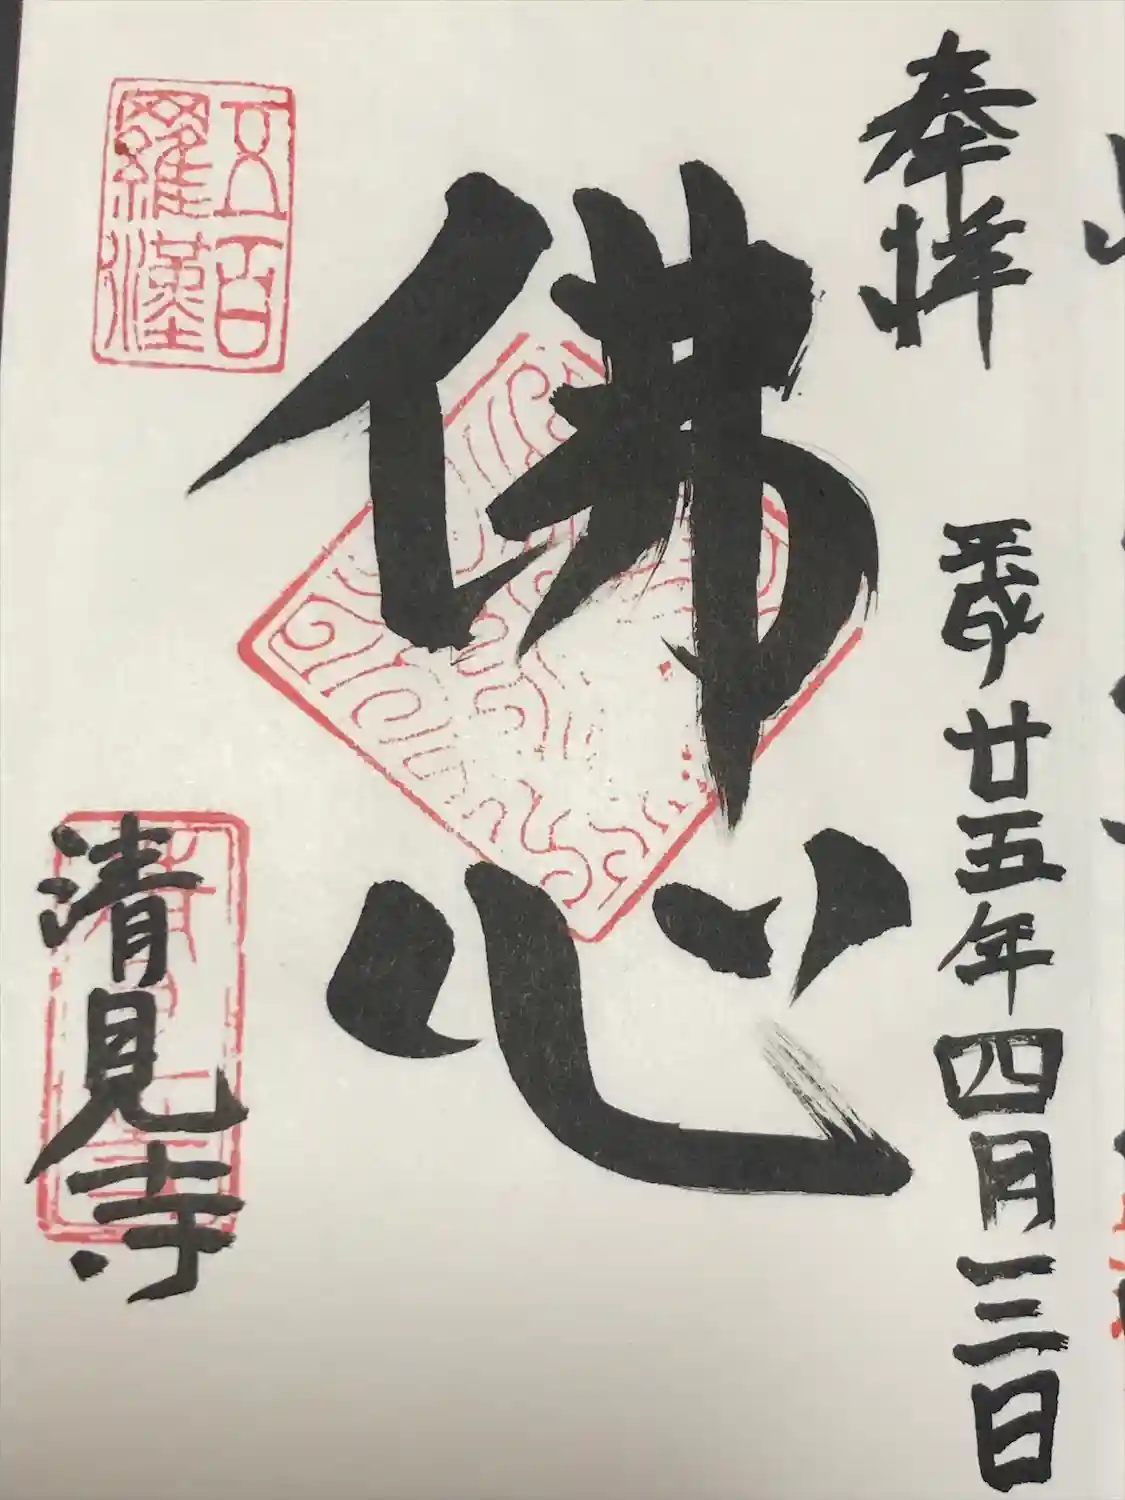 奉拝
平成廿五年四月三日
佛心
五百
羅漢
清見寺